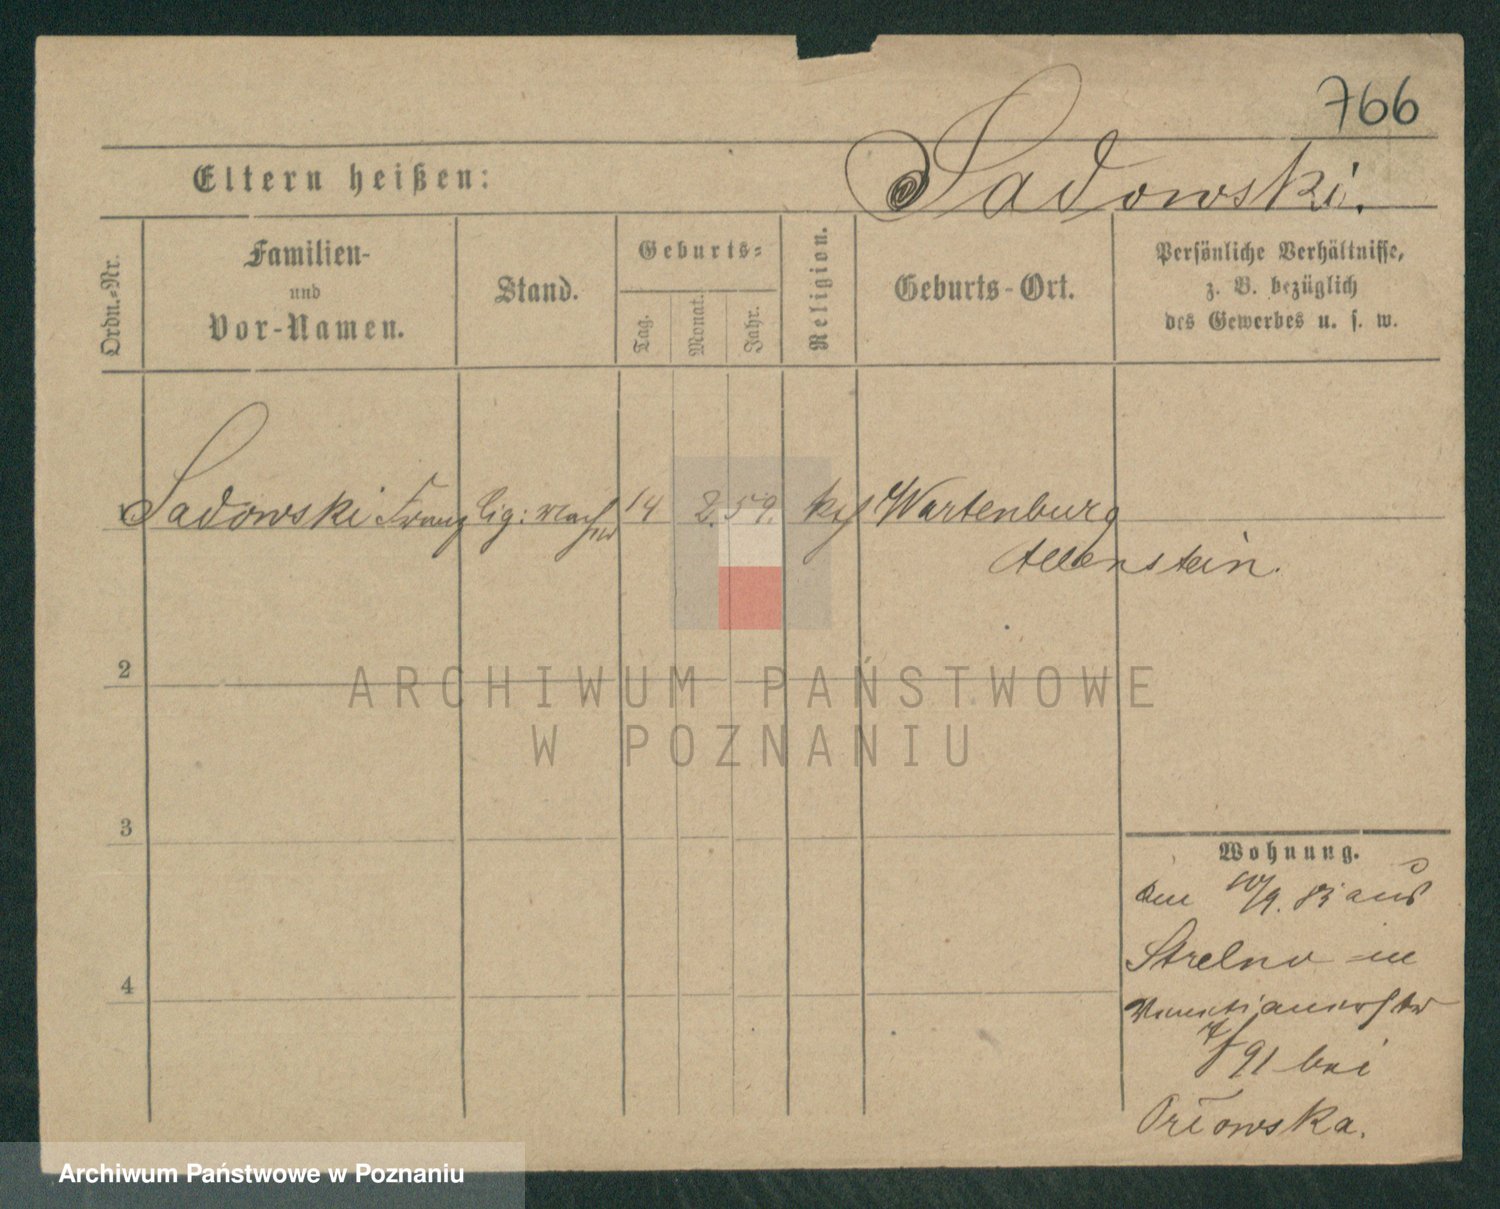 766
Eltern heißen: Sadowski.
Ordn.-Nr.
Familien-
und
Vor-Namen.
Stand.
Geburts-
Tag.
Monat.
Jahr.
Religion.
Geburts-Ort.
Persönliche Verhältnisse,
z. B. bezüglich
des Gewerbes u. s. w.
Sadowski Franz Cig: 14 2. 59. kth Wartenburg
Allenstein.
2
ARCHIWUM PAŃSTWOWE
W POZNANIU
3
Wohnung.
den 10/9. 83 aus
Strelno in
4
91 bei
Orłowska.
Archiwum Państwowe w Poznaniu